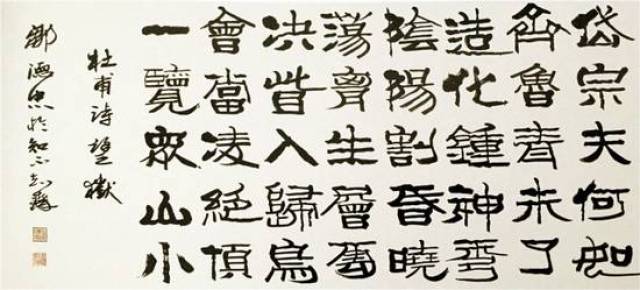 岱宗夫何如
齊魯青未了
造化鍾神秀
陰陽割昏曉
蕩胷生曾雲
決眥入歸鳥
會當凌絕頂
一覽眾山小
杜甫詩望嶽
鄒德忠於知不